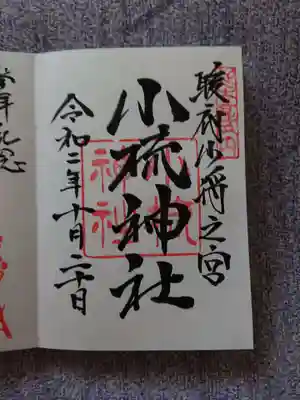 駿府少将之宮
小梳神社
小梳
神社
令和二年十月二十日